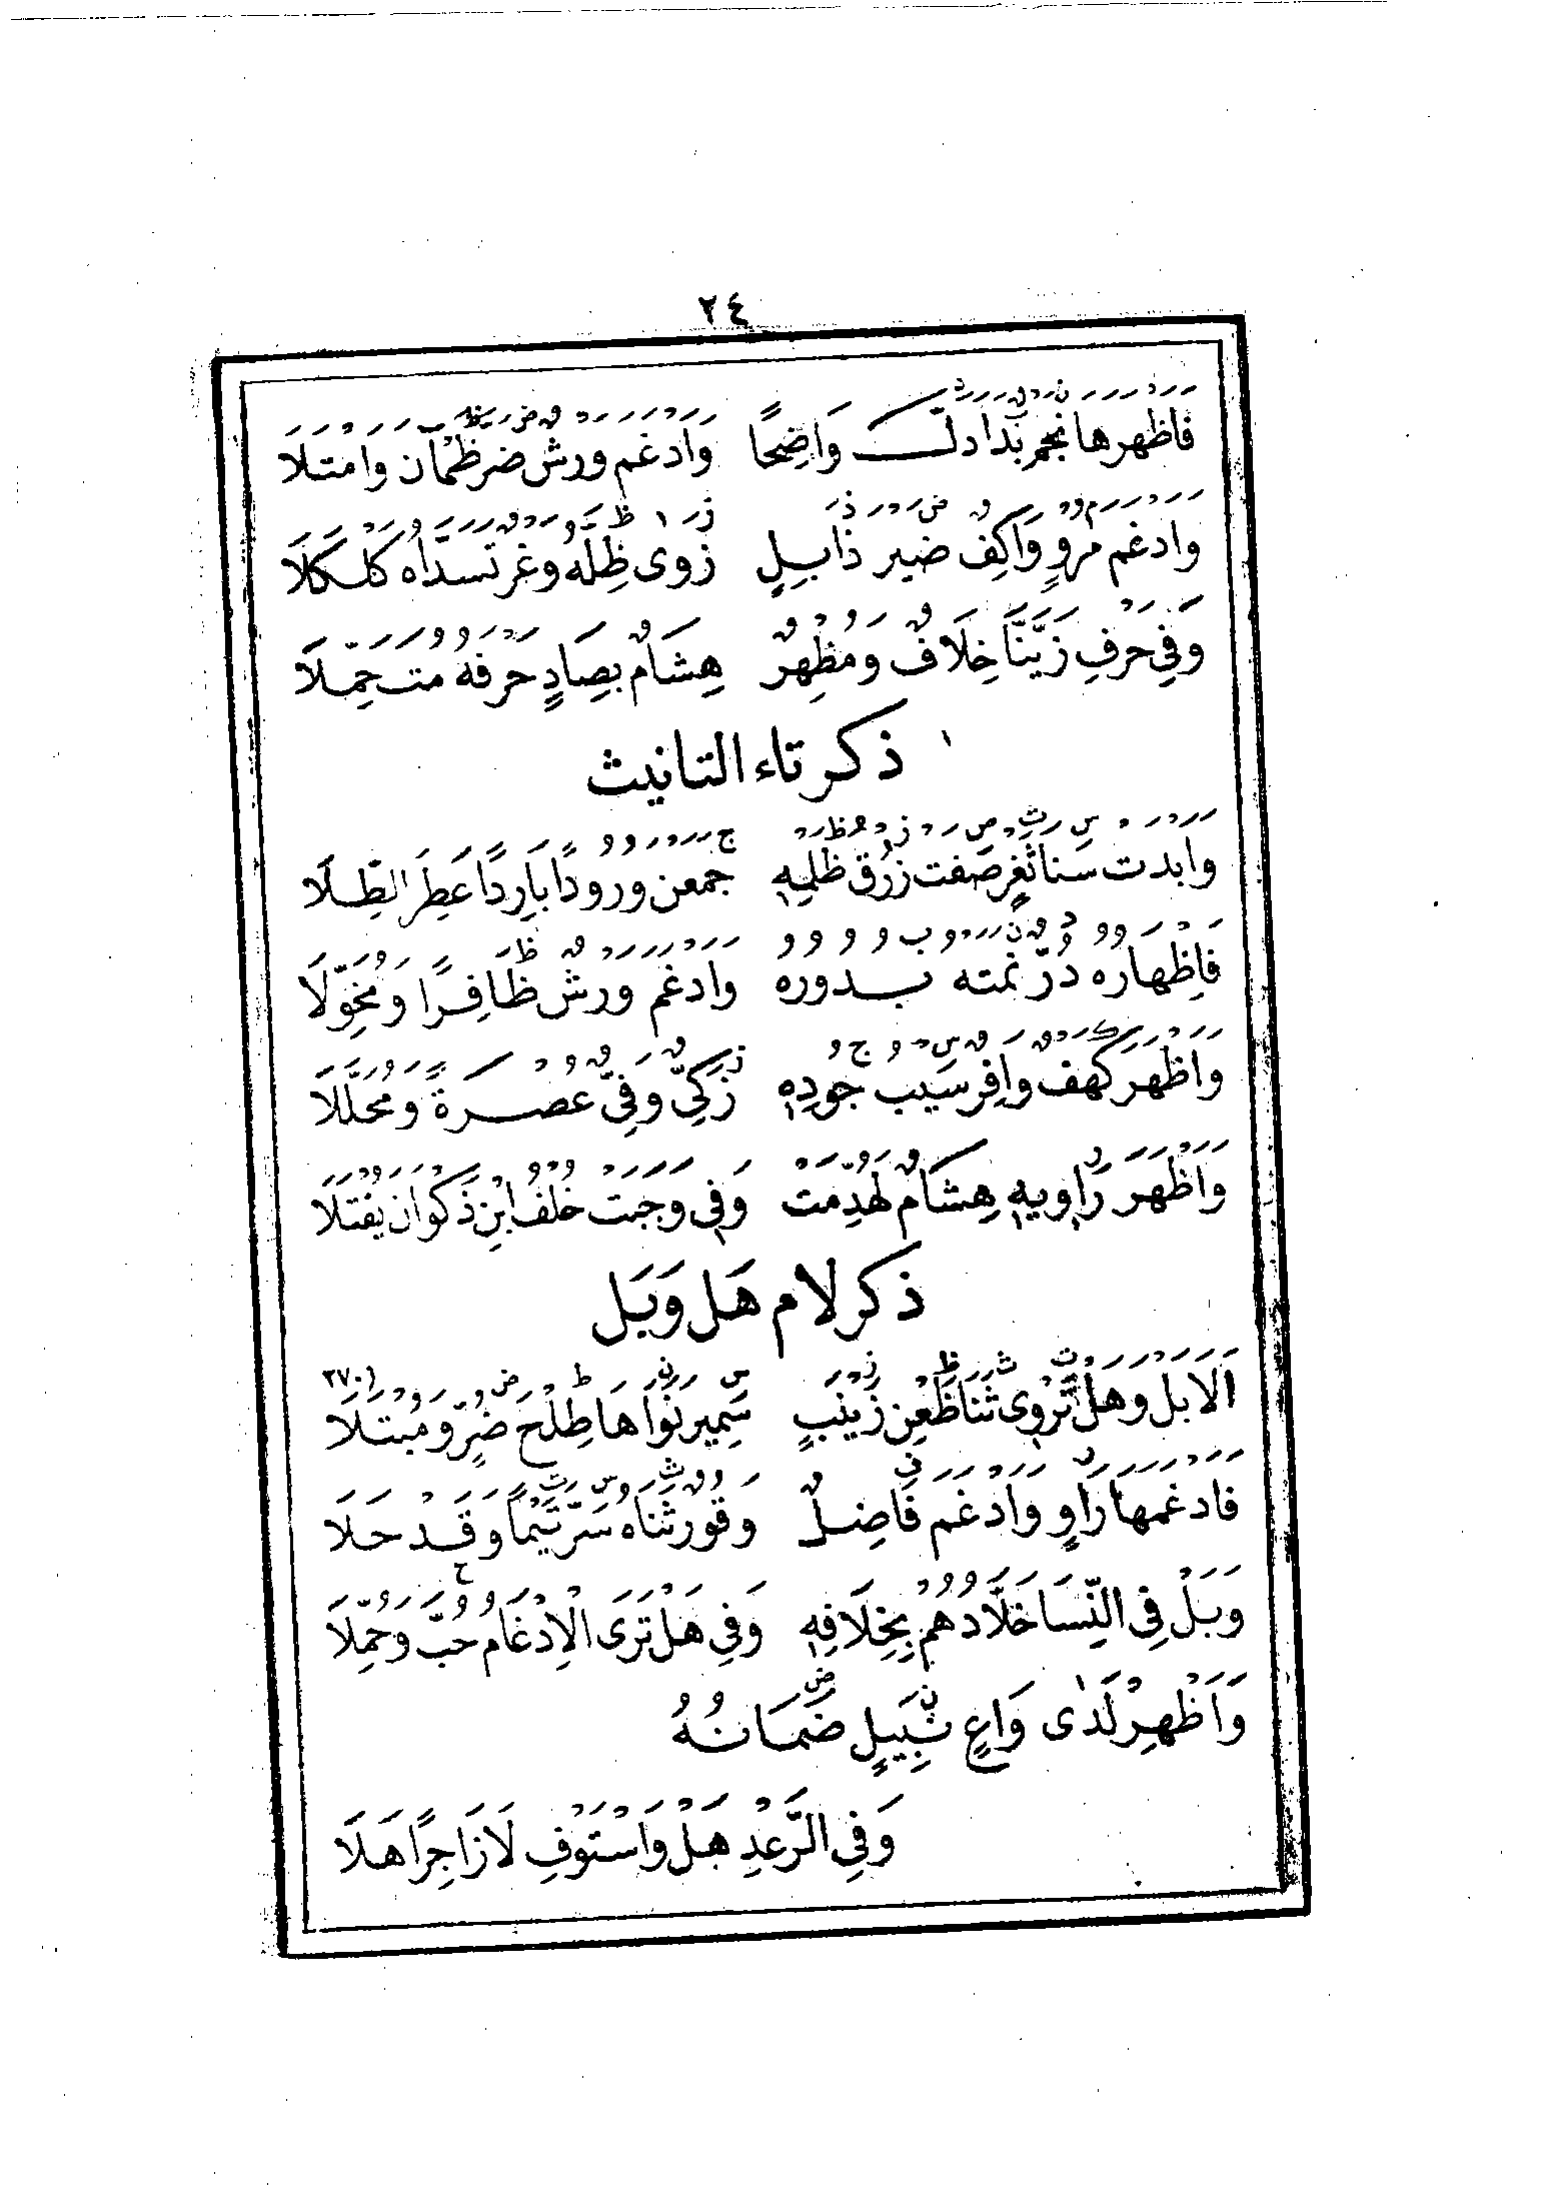 ٢٤
فاظهرها نجم بدا دلّ وَاضِحًا وَادغم ورش ضر ظمْآن وامتلا
وادغم مروٍ وَاكِفٌ ضير ذابِلٍ زوى ظِلّهُ وغر تسدّاهُ كلكلا
وَفِي حَرفِ زَيَّنَّا خِلَافٌ وَمُظهِرٌ هِشَامٌ بِصَادٍ حَرفَهُ مُتَحَمِّلَا
ذكر تاء التانيث
وابدت سنا ثغرٍ صَفت زُرْق ظلمِهِ جمعن ورودًا بَارِدًا عَطِرَ الطِّلَا
فَاِظهاره دُرّ نمته بدوره وَادغم ورش ظَافِرًا وَمُخَوِّلَا
وَاظهَر كَهفٌ وَافِر سَيب جُودِهِ زَكِيٌّ وَفِيٌّ عُصْرَةً وَمُحَلَّلَا
وَاظهَرَ رَاوِيهِ هِشَامٌ لهُدِّمَتْ وَفِي وَجَبَتْ خُلْفُ ابْنِ ذَكوَانَ يُفْتَلَا
ذكر لام هَل وَبَل
اَلَا بل وهل تَرْوِى ثَنَا ظَعْنِ زَيْنَبٍ سَمِيرَ نَوَاهَا طِلْحَ ضُرٍّ وَمُبْتَلَا (٢٧٠
فادغمها رَاوٍ وَادغم فَاضِلٌ وَقُور ثَنَاهُ سَرَّ تَيْمًا وَقَد حَلَا
وَبَلْ فِي النِّسَا خَلَّادُهُمْ بِخِلَافِهِ وَفِي هَلْ تَرَى الْاِدْغَام حُبَّ وَحُمِّلَا
وَاَظْهِرْ لَدٰى وَاعٍ نَبِيلٍ ضَمَانُهُ
وَفِي الرَّعْدِ هَلْ وَاسْتَوْفِ لَا زَاجِرًا هَلَا